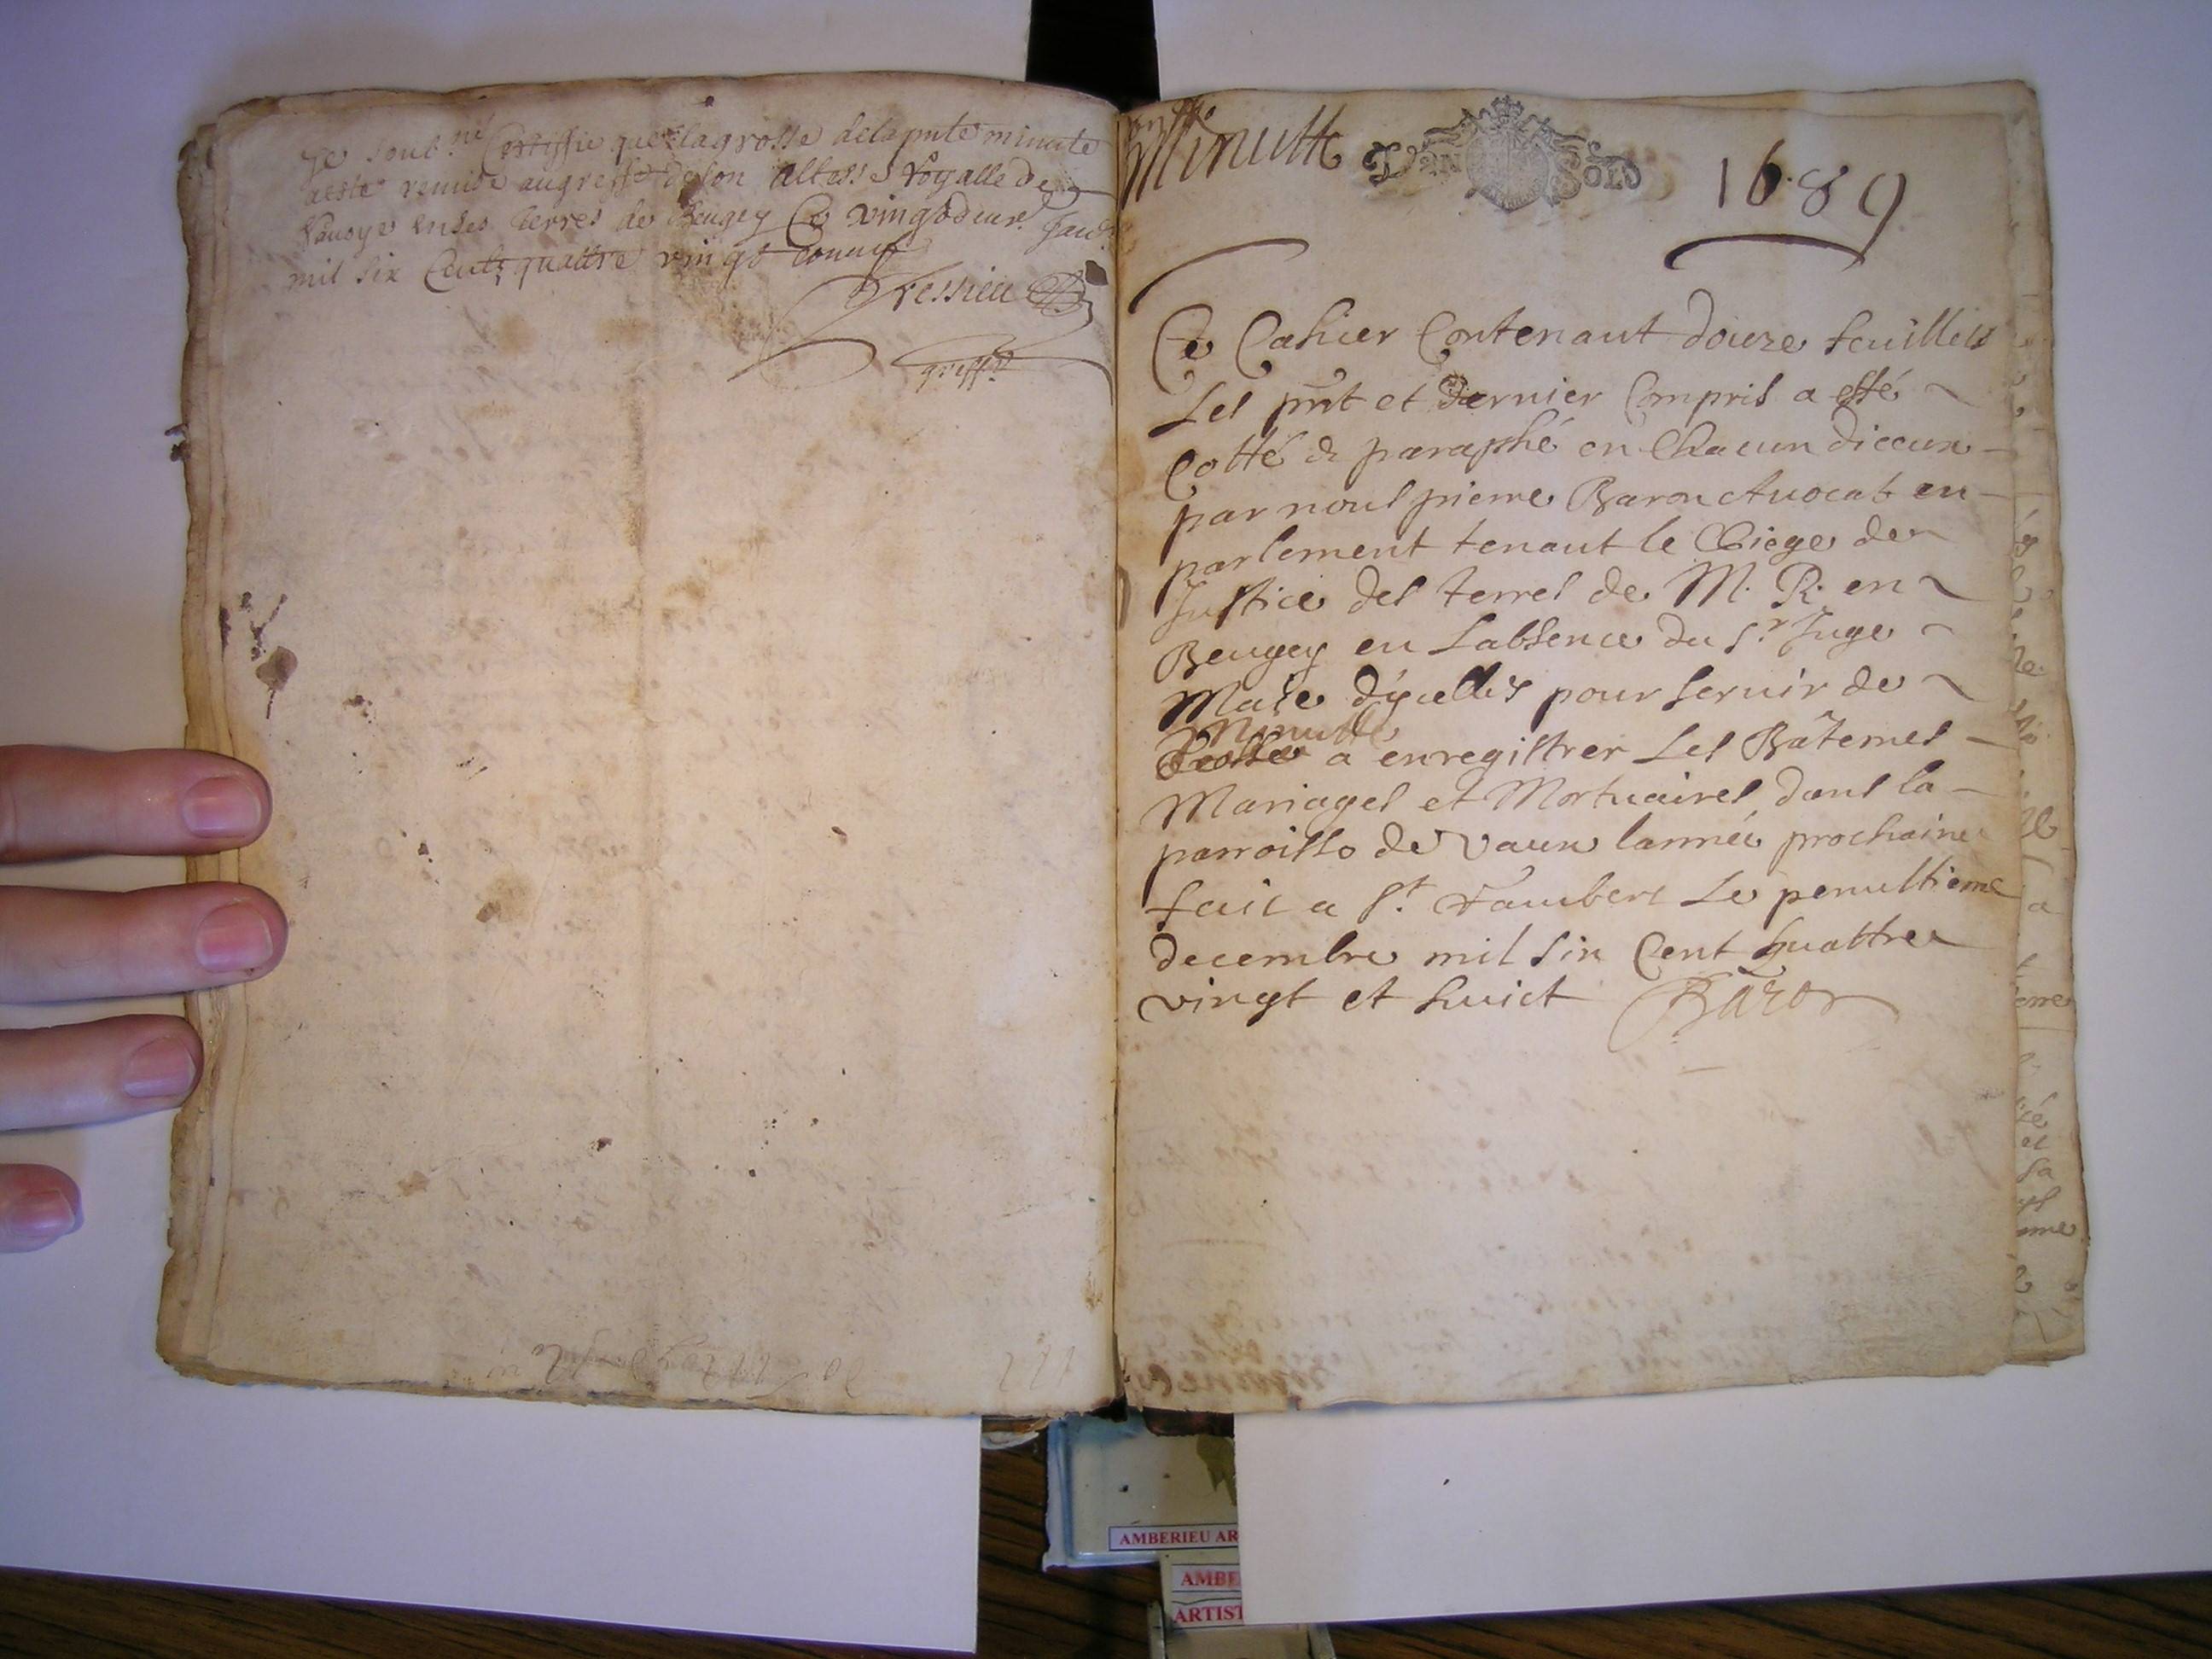 Je soubne Certiffie que la grosse de la pnte minute
a esté remise au greffe de son Altesse Royalle de
Sauoye en ses terres de Beugey Ce vingtdeux
mil six Centz quattre vingt
Tressieu
greffr
Minutte
VN SOLD
1689
Ce Cahier Contenant douze feuillets
Les pnt et dernier Compris a esté
Cotté & paraphé en Chacun diceux
par nous pierre Baron Auocat en
parlement tenant le Siege de
Justice des terres de M. R. en
Beugey en Labsence du Sr Juge
Maie dycelles pour seruir de
Minutte
a enregistrer Les Bâtemes
Mariages et Mortuaires dans la
parroisse de Vaux lannée prochaine
fait a St. Rambert Le penultieme
decembre mil six Cent quattre
vingt et huict Baron
AMBERIEU AR
AMBE
ARTIST